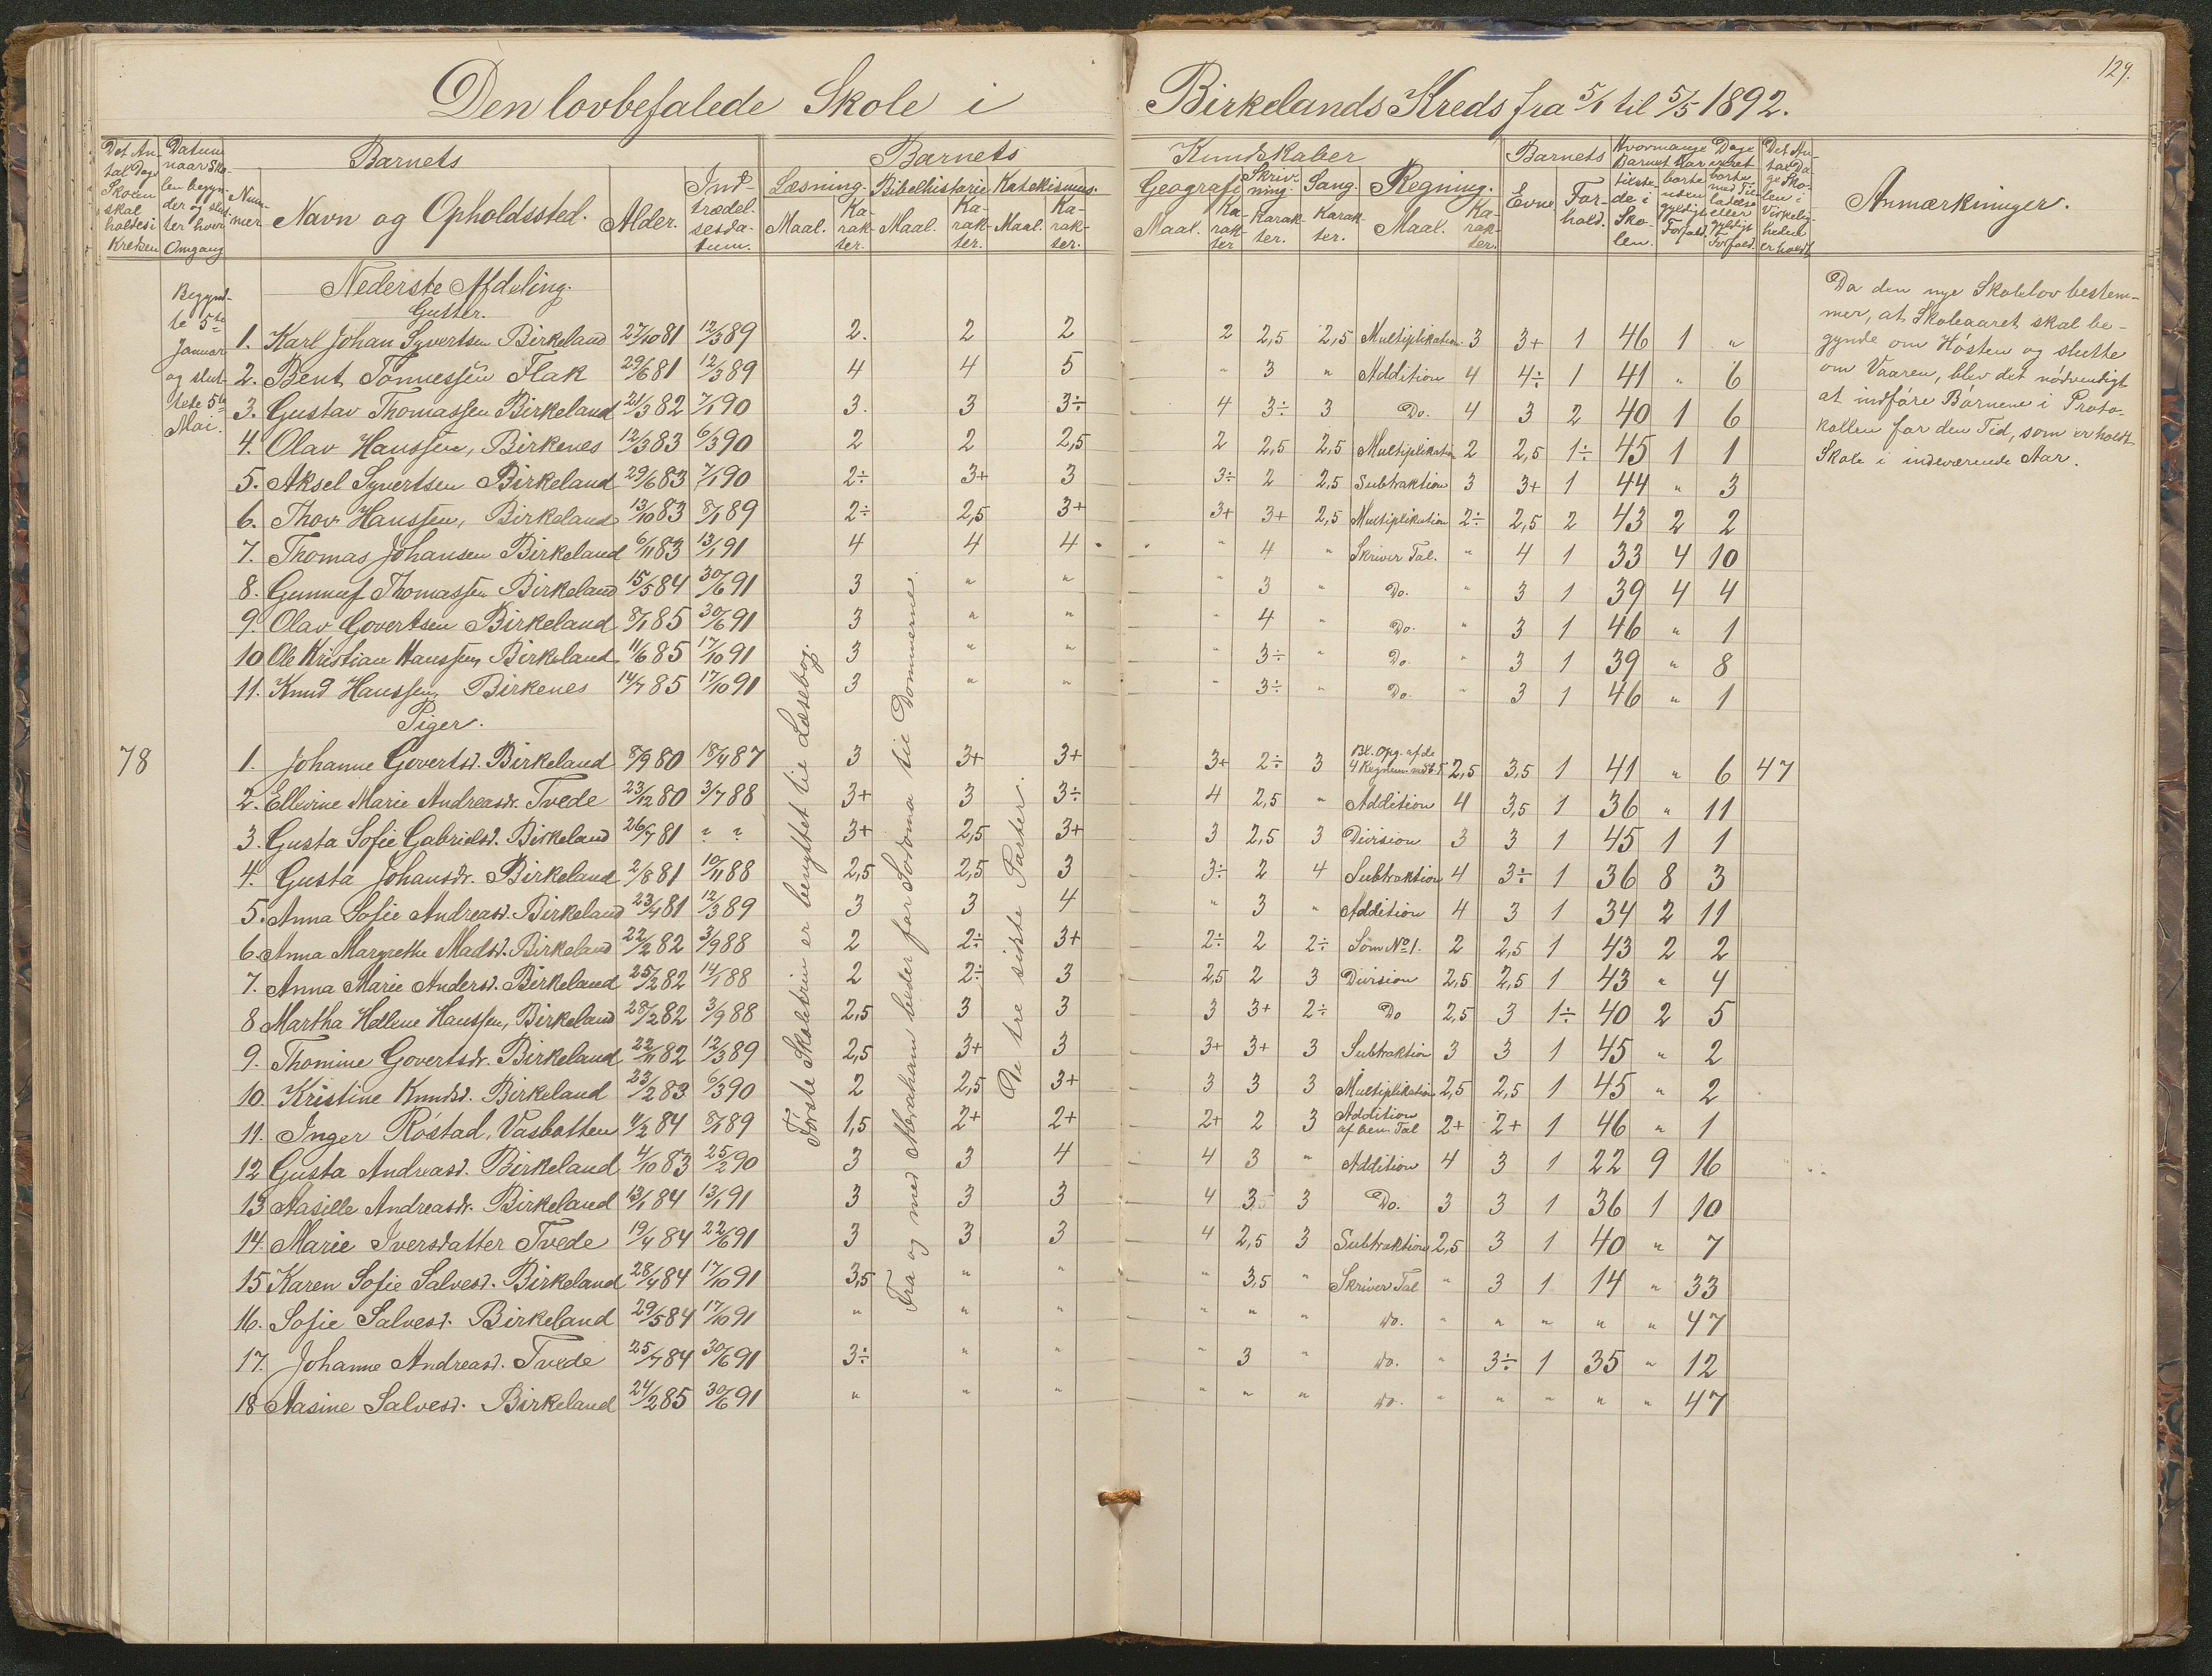 129.
Den lovbefalede Skole i Birkelands Kreds fra 5/1 til 5/5 1892.
Det An-
tal Dage
Skolen
skal
holdes i
Kredsen
Datum
naar Sko-
len begyn-
der og slut-
ter hver
Omgang
Num-
mer
Barnets
Navn og Opholdssted. Alder. Ind-
trædel-
sesda-
tum.
Barnets Kundskaber
Læsning. Bibelhistorie Katekismus.
Maal. Ka-
rak-
ter. Maal. Ka-
rak-
ter. Maal. Ka-
rak-
ter.
Geografi Skriv-
ning. Sang. Regning.
Maal. Ka-
rak-
ter Karak-
ter. Karak-
ter. Maal. Ka-
rak-
ter.
Barnets
Evne For-
hold.
Hvormange Dage
Barnet har været
tilste-
de i
Sko-
len.
borte
uden
gyldigt
Forfald.
borte
med Til-
ladelse
eller
gyldigt
Forfald.
Det An-
tal Da-
ge Sko-
len i
Virkelig-
heden
er holdt
Anmærkninger.
Begynd-
te 5te
Januar
og slut-
tede 5te
Mai.
Nederste Afdeling.
Gutter.
1. Karl Johan Syvertsen Birkeland 27/10 81 12/3 89 2. 2 2 2 2,5 2,5 Multiplikation 3 3+ 1 46 1 "
2. Bent Tønnessen Flak 29/6 81 12/3 89 4 4 5 " 3 " Addition 4 4÷ 1 41 " 6
3. Gustav Thomassen Birkeland 21/3 82 7/1 90 3. 3 3÷ 4 3÷ 3 Do. 4 3 2 40 1 6
4. Olav Hanssen, Birkenes 12/3 83 6/3 90 2 2 2,5 2 2,5 2,5 Multiplikation 2 2,5 1÷ 45 1 1
5. Aksel Syvertsen Birkeland 29/6 83 7/1 90 2÷ 3+ 3 3÷ 2 2,5 Subtraktion 3 3+ 1 44 " 3
6. Thov Hanssen, Birkeland 13/10 83 8/1 89 2÷ 2,5 3+ 3+ 3+ 2,5 Multiplikation 2÷ 2,5 2 43 2 2
7. Thomas Johansen Birkeland 6/11 83 13/1 91 4 4 4 " 4 " Skriver Tal. " 4 1 33 4 10
8. Gunnuf Thomassen Birkeland 15/5 84 30/6 91 3 " " " 3 " Do. " 3 1 39 4 4
9. Olav Govertsen Birkeland 8/1 85 30/6 91 3 " " " 4 " Do. " 3 1 46 " 1
10 Ole Kristian Hanssen, Birkeland 11/6 85 17/10 91 3 " " " 3÷ " Do. " 3 1 39 " 8
11. Knud Hanssen, Birkenes 14/7 85 17/10 91 3 " " " 3÷ " Do. " 3 1 46 " 1
Piger.
78 1. Johanne Govertsd. Birkeland 8/9 80 18/4 87 3 3+ 3+ 3+ 2÷ 3 Bl. Opg. af de
4 Regnem. 2,5 3,5 1 41 " 6 47
2. Ellevine Marie Andreasdr. Tvede 23/12 80 3/7 88 3+ 3 3÷ 4 2,5 " Addition 4 3,5 1 36 " 11
3. Gusta Sofie Gabrielsd. Birkeland 26/7 81 ? ? 3+ 2,5 3+ 3 2,5 3 Division 3 3 1 45 1 1
4. Gusta Johansdr. Birkeland 2/8 81 10/11 88 2,5 2,5 3 3÷ 2 4 Subtraktion 4 3÷ 1 36 8 3
5. Anna Sofie Andreasd. Birkeland 23/4 81 12/3 89 3 3 4 " 3 " Addition 4 3 1 34 2 11
6. Anna Margrethe Madsd. Birkeland 22/2 82 3/9 88 2 2÷ 3+ 2÷ 2 2÷ Som No 1. 2 2,5 1 43 2 2
7. Anna Marie Andersd. Birkeland 25/2 82 14/1 88 2 2÷ 3 2,5 2 3 Division 2,5 2,5 1 43 " 4
8 Martha Helene Hanssen, Birkeland 28/2 82 3/9 88 2,5 3 3 3 3+ 2÷ Do 2,5 3 1÷ 40 2 5
9. Thomine Govertsdr. Birkeland 22/11 82 12/3 89 2,5 3+ 3 3+ 3+ 3 Subtraktion 3 3 1 45 " 2
10. Kristine Knudsd. Birkeland 23/2 83 6/3 90 2 2,5 3+ 3 3 3 Multiplikation 2,5 2,5 1 45 " 2
11. Inger Røstad, Vasbotten 4/2 84 8/1 89 1,5 2+ 2+ 2+ 2 3 Addition
af ben. Tal 2+ 2+ 1 46 " 1
12 Gusta Andreasd. Birkeland 4/10 83 25/2 90 3 3 4 4 3 " Addition 4 3 1 22 9 16
13 Aasille Andreasdr. Birkeland 13/1 84 13/1 91 3 3 3 4 3,5 3 Do. 3 3 1 36 1 10
14. Marie Iversdatter Tvede 19/4 84 22/6 91 3 3 3 4 2,5 3 Subtraktion 2,5 3 1 40 " 7
15 Karen Sofie Salvesd. Birkeland 28/4 84 17/10 91 3,5 " " " 3,5 " Skriver Tal " 3 1 14 " 33
16. Sofie Salvesd. Birkeland 29/5 84 17/10 91 " " " " " " do. " " " " " 47
17. Johanne Andreasd. Tvede 25/7 84 30/6 91 3÷ " " " 3 " do. " 3÷ 1 35 " 12
18 Aasine Salvesd. Birkeland 24/2 85 30/6 91 " " " " " " do. " " " " " 47
Første Skoletrin er benyttet til Læsebog.
Fra og med Abraham beder for Sodoma til Dommerne.
De tre sidste Parter.
Da den nye Skolelov bestem-
mer, at Skoleaaret skal be-
gynde om Høsten og slutte
om Vaaren, blev det nødvendigt
at indføre Børnene i Proto-
kollen for den Tid, som er holdt
Skole i indeværende Aar.